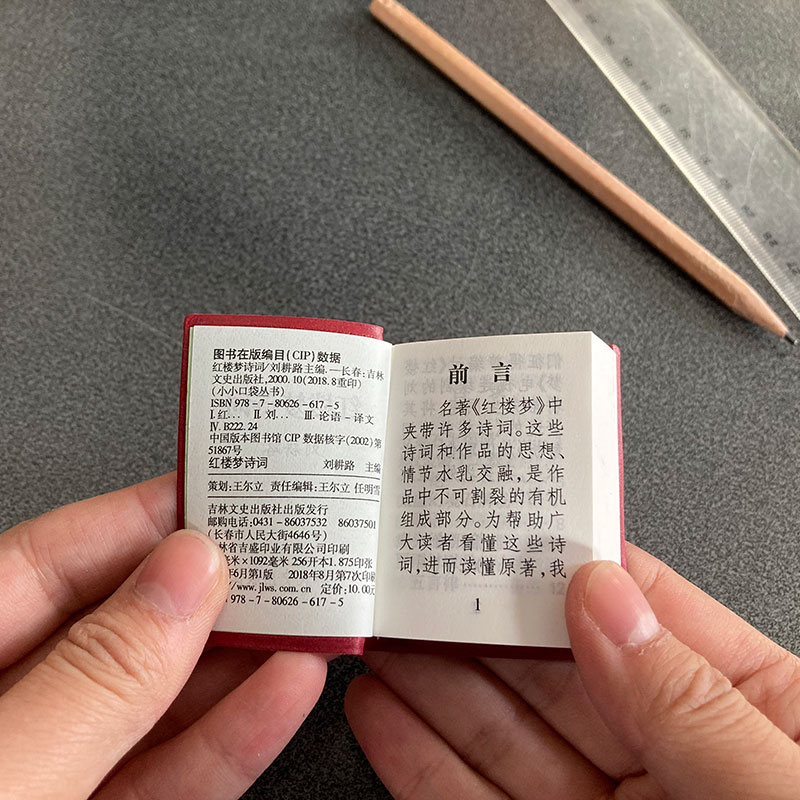 图书在版编目(CIP)数据
红楼梦诗词/刘耕路主编.—长春:吉林
文史出版社,2000.10(2018.8重印)
(小小口袋丛书)
ISBN 978-7-80626-617-5
Ⅰ.红… Ⅱ.刘… Ⅲ.论语-译文
Ⅳ.B222.24
中国版本图书馆CIP数据核字(2002)第
51867号
红楼梦诗词 刘耕路 主编
策划:王尔立 责任编辑:王尔立 任明雪
吉林文史出版社出版发行
邮购电话:0431-86037532 86037501
(长春市人民大街4646号)
林省吉盛印业有限公司印刷
毫米×1092毫米 256开本1.875印张
年6月第1版 2018年8月第7次印刷
www.jlws.com.cn 定价:10.00元
978-7-80626-617-5
前言
名著《红楼梦》中
夹带许多诗词。这些
诗词和作品的思想、
情节水乳交融,是作
品中不可割裂的有机
组成部分。为帮助广
大读者看懂这些诗
词,进而读懂原著,我
1